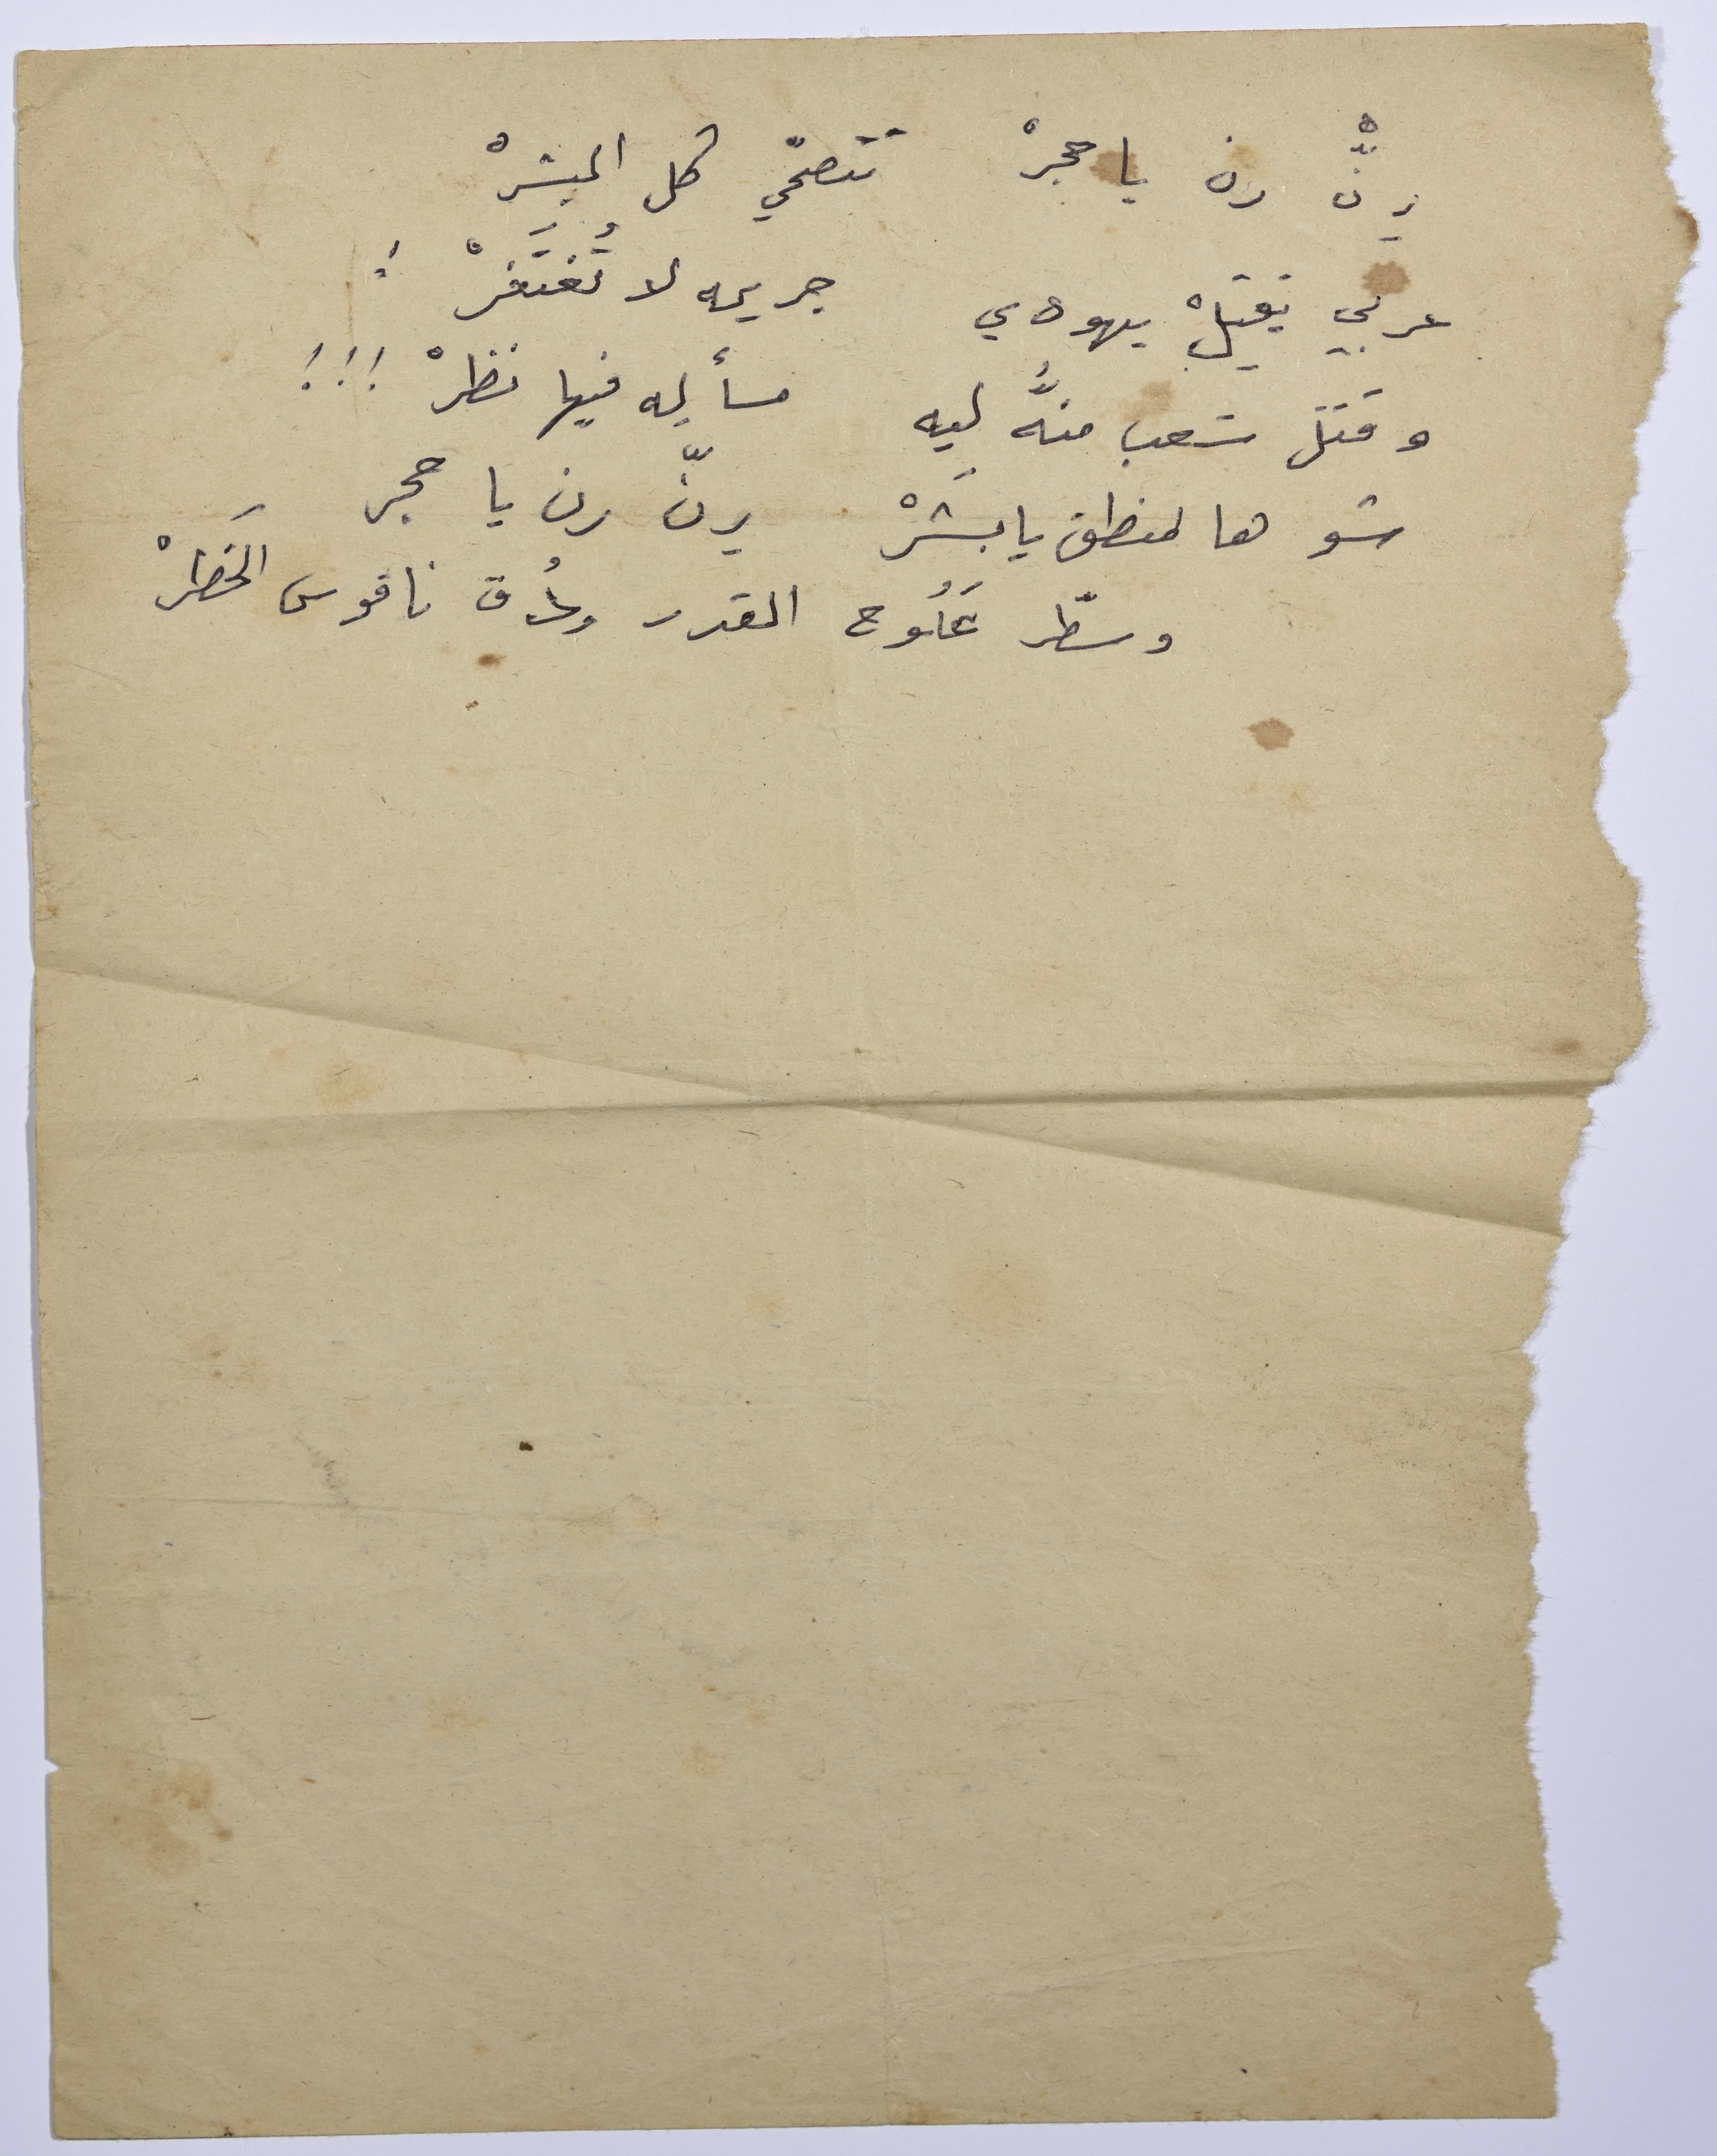 رِنّْ رن يا حجرْ تَتصحّي كل البشرْ
عربي يَقتِلْ يهودي جريمه لا تُغتَفرْ !
وقَتل شعب منُّه ليه مسأله فيها نظرْ !!!
شو هالمنطق يا بشَرْ رِنّ رن يا حجر
وسطّر عَلُوح القدر ودُق ناقوس الخَطرْ